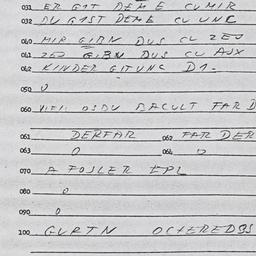 031 ER GIT DEME CUMIR
032 DU GIST DEME CU UNC
040 MIR GIBN DUS CU ZEJ
041 ZEJ GIBN DUS CU AJX
042 KINDER GITUNC D1-
050 0
060 OSDU BACULT FAR D
061 DERFAR 062 FAR DER
063 0 064 0
070 A FOSLER EPL
080 0
090 0
100 GURTN OCTEREDGS